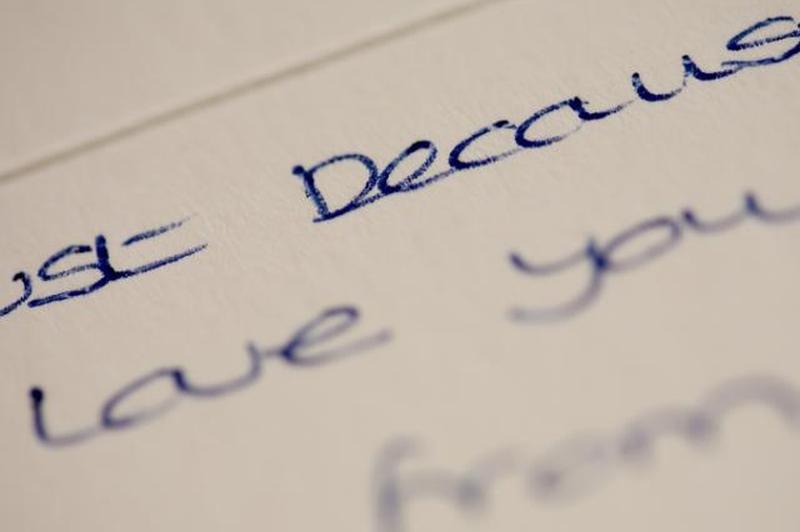 ust Becaus
Love you
from